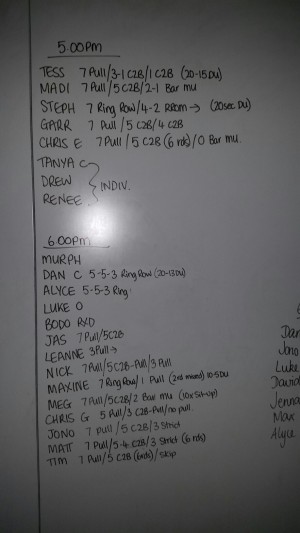 5.00pm
TESS 7 Pull/3-1 C2B/1 C2B (20-15 DU)
MADI 7 Pull/5 C2B/2-1 Bar mu
STEPH 7 Ring Row/4-2 RRom → (20sec DU)
GARR 7 Pull/5 C2B/4 C2B
CHRIS E 7 Pull/5 C2B (6 rds)/0 Bar mu.
TANYA C
DREW } INDIV.
RENEE
6.00pm
MURPH
DAN C 5-5-3 Ring Row (20-13 DU)
ALYCE 5-5-3 Ring
LUKE O
BODO RXD
JAS 7 Pull/5 C2B
LEANNE 3 Pull →
NICK 7 Pull/5 C2B-Pull/3 Pull
MAXINE 7 Ring Row/1 Pull (2nd mixed) 10-5 DU
MEG 7 Pull/5 C2B/2 Bar mu (10x Sit-up)
CHRIS G 5 Pull/3 C2B-Pull/no pull.
JONO 7 pull/5 C2B/3 Strict
MATT 7 Pull/5-4 C2B/3 Strict (6 rds)
TIM 7 Pull/5 C2B (6rds)/skip
Dan
Jono
Luke
David
Jenna
Max
Alyce